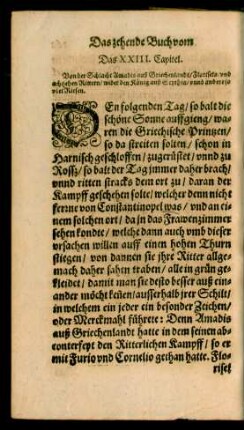 Das zehende Buch vom
Das XXIII. Capitel.
Von der Schlacht Amadis auß Griechenlandt/ Florisels/ vnd
achtzehen Rittern/ wider den König auß Scythia/ vnnd andere so
viel Riesen.
DEn folgenden Tag/ so balt die
schöne Sonne auffgieng/ wa-
ren die Griechische Prinzen/
so da streiten solten/ schon in
Harnisch geschlossen/ zugerüstet/ vnnd zu
Rossz/ so balt der Tag immer daher brach/
vnnd ritten stracks dem ort zu/ daran der
Kampff geschehen solte/ welcher denn nicht
ferrne von Constantinopel was/ vnd an ei-
nem solchen ort/ da in das Frawenzimmer
sehen kondte/ welche dann auch vmb dieser
vrsachen willen auff einen hohen Thurn
stiegen/ von dannen sie ihre Ritter allge-
mach daher sahen traben/ alle in grün ge-
kleidet/ damit man sie desto besser auß ein-
ander möcht keñen/ ausserhalb jrer Schilt/
in welchem ein jeder ein besonder Zeichen/
oder Merckmahl führete: Denn Amadis
auß Griechenlandt hatte in dem seinen ab-
conterfept den Ritterlichen Kampff/ so er
mit Furio vnd Cornelio gethan hatte. Flo-
risel